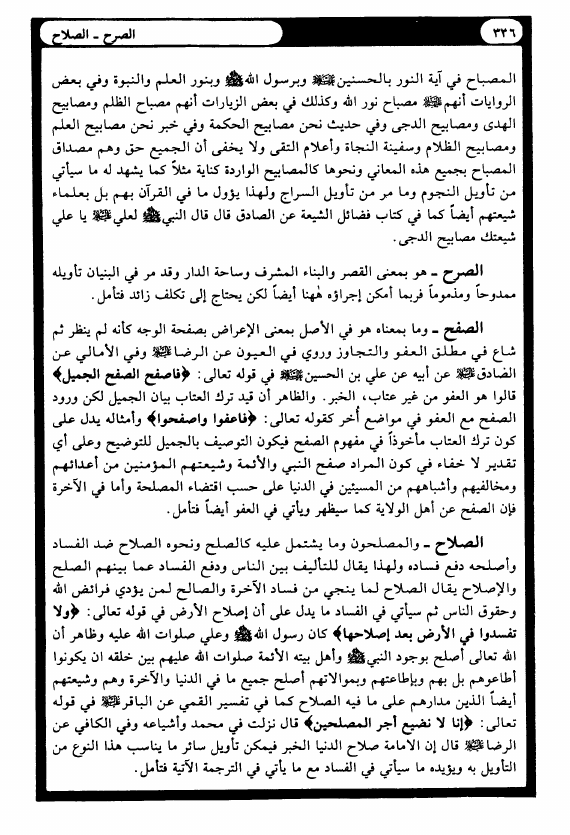 ٣٣٦
الصرح ـ الصلاح
المصباح في آية النور بالحسنين ﷺ وبرسول الله ﷺ وبنور العلم والنبوة وفي بعض
الروايات أنهم ﷺ مصباح نور الله وكذلك في بعض الزيارات أنهم مصباح الظلم ومصابيح
الهدى ومصابيح الدجى وفي حديث نحن مصابيح الحكمة وفي خبر نحن مصابيح العلم
ومصابيح الظلام وسفينة النجاة وأعلام التقى ولا يخفى أن الجميع حق وهم مصداق
المصباح بجميع هذه المعاني ونحوها كالمصابيح الواردة كناية مثلاً كما يشهد له ما سيأتي
من تأويل النجوم وما مر من تأويل السراج ولهذا يؤول ما في القرآن بهم بل بعلماء
شيعتهم أيضاً كما في كتاب فضائل الشيعة عن الصادق قال قال النبي ﷺ لعلي يا علي
شيعتك مصابيح الدجى.
الصرح ـ هو بمعنى القصر والبناء المشرف وساحة الدار وقد مر في البنيان تأويله
ممدوحاً ومذموماً فربما أمكن إجراؤه هٰهنا أيضاً لكن يحتاج إلى تكلف زائد فتأمل.
الصفح ـ وما بمعناه هو في الأصل بمعنى الإعراض بصفحة الوجه كأنه لم ينظر ثم
شاع في مطلق العفو والتجاوز وروي في العيون عن الرضا وفي الأمالي عن
الصادق عن أبيه عن علي بن الحسين في قوله تعالى: ﴿فاصفح الصفح الجميل﴾
قالوا هو العفو من غير عتاب، الخبر. والظاهر أن قيد ترك العتاب بيان الجميل لكن ورود
الصفح مع العفو في مواضع أُخر كقوله تعالى: ﴿فاعفوا واصفحوا﴾ وأمثاله يدل على
كون ترك العتاب مأخوذاً في مفهوم الصفح فيكون التوصيف بالجميل للتوضيح وعلى أي
تقدير لا خفاء في كون المراد صفح النبي والأئمة وشيعتهم المؤمنين من أعدائهم
ومخالفيهم وأشباههم من المسيئين في الدنيا على حسب اقتضاء المصلحة وأما في الآخرة
فإن الصفح عن أهل الولاية كما سيظهر ويأتي في العفو أيضاً فتأمل.
الصلاح ـ والمصلحون وما يشتمل عليه كالصلح ونحوه الصلاح ضد الفساد
وأصلحه دفع فساده ولهذا يقال للتأليف بين الناس ودفع الفساد عما بينهم الصلح
والإصلاح يقال الصلاح لما ينجي من فساد الآخرة والصالح لمن يؤدي فرائض الله
وحقوق الناس ثم سيأتي في الفساد ما يدل على أن إصلاح الأرض في قوله تعالى: ﴿ولا
تفسدوا في الأرض بعد إصلاحها﴾ كان رسول الله ﷺ وعلي صلوات الله عليه وظاهر أن
الله تعالى أصلح بوجود النبي ﷺ وأهل بيته الأئمة صلوات الله عليهم بين خلقه ان يكونوا
أطاعوهم بل بهم وبإطاعتهم وبموالاتهم أصلح جميع ما في الدنيا والآخرة وهم وشيعتهم
أيضاً الذين مدارهم على ما فيه الصلاح كما في تفسير القمي عن الباقر في قوله
تعالى: ﴿إنا لا نضيع أجر المصلحين﴾ قال نزلت في محمد وأشياعه وفي الكافي عن
الرضا قال إن الامامة صلاح الدنيا الخبر فيمكن تأويل سائر ما يناسب هذا النوع من
التأويل به ويؤيده ما سيأتي في الفساد مع ما يأتي في الترجمة الآتية فتأمل.